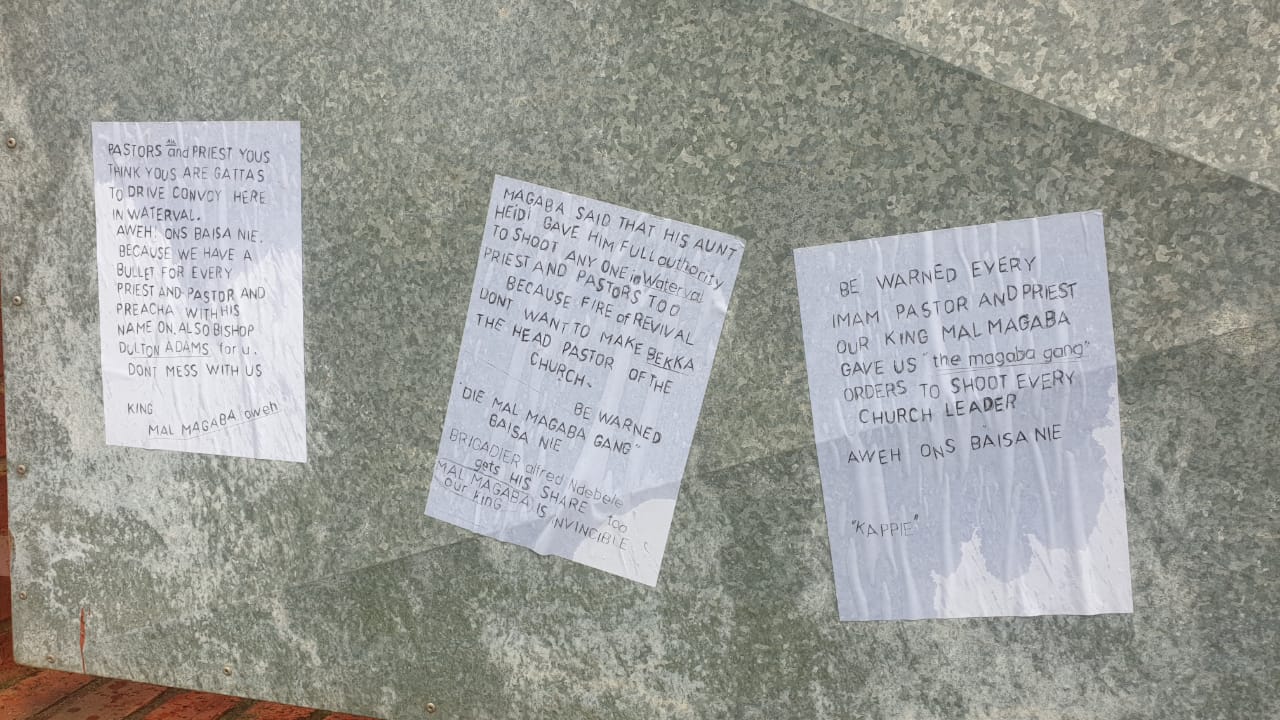 PASTORS ALL and PRIEST YOUS
THINK YOUS ARE GATTAS
TO DRIVE CONVOY HERE
IN WATERVAL.
AWEH! ONS BAISA NIE.
BECAUSE WE HAVE A
BULLET FOR EVERY
PRIEST AND PASTOR AND
PREACHA WITH HIS
NAME ON. ALSO BISHOP
DULTON ADAMS for u.
DONT MESS WITH US
KING
MAL MAGABA aweh
MAGABA SAID THAT HIS AUNT
HEIDI GAVE HIM FULL authority
TO SHOOT ANY ONE in Waterval
PRIEST AND PASTORS TOO
BECAUSE FIRE of REVIVAL
DONT WANT TO MAKE BEKKA
THE HEAD PASTOR OF THE
CHURCH.
BE WARNED
"DIE MAL MAGABA GANG"
BAISA NIE
BRIGADIER alfred Ndebele
gets HIS SHARE too
MAL MAGABA IS INVINCIBLE
our king
BE WARNED EVERY
IMAM PASTOR AND PRIEST
OUR KING MAL MAGABA
GAVE US "the magaba gang"
ORDERS TO SHOOT EVERY
CHURCH LEADER
AWEH ONS BAISA NIE
"KAPPIE"